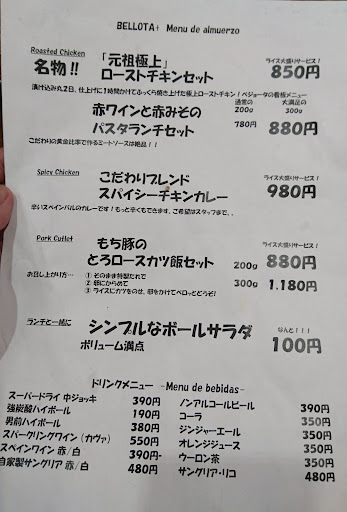 BELLOTA! Menu de almuerzo
Roasted Chicken
名物!! 「元祖極上」
ローストチキンセット
ライス大盛りサービス!
850円
漬け込み丸2日、仕上げに1時間かけてふっくら焼き上げた極上ローストチキン!ベジョータの看板メニュー
赤ワインと赤みその
パスタランチセット
通常の 大満足の
200g 300g
780円 880円
こだわりの黄金比率で作るミートソースは絶品!!
Spicy Chicken
こだわりブレンド
スパイシーチキンカレー
ライス大盛りサービス!
980円
辛いスペインバルのカレーです!もっと辛くもできます。ご希望はスタッフまで、、
Pork Cutlet
もち豚の
とろロースカツ飯セット
ライス大盛りサービス!
200g 880円
300g 1.180円
お召し上がり方…
① そのまま特製だれで
② 卵にからめて
③ ライスにカツをのせ、卵をかけてペロッとどうぞ!
ランチと一緒に
シンプルなボールサラダ
ボリューム満点
なんと!!!
100円
ドリンクメニュー -Menu de bebidas-
スーパードライ 中ジョッキ 390円
強炭酸ハイボール 190円
男前ハイボール 380円
スパークリングワイン (カヴァ) 550円
スペインワイン 赤/白 390円~
自家製サングリア 赤/白 480円
ノンアルコールビール 390円
コーラ 350円
ジンジャーエール 350円
オレンジジュース 350円
ウーロン茶 350円
サングリア・リコ 480円